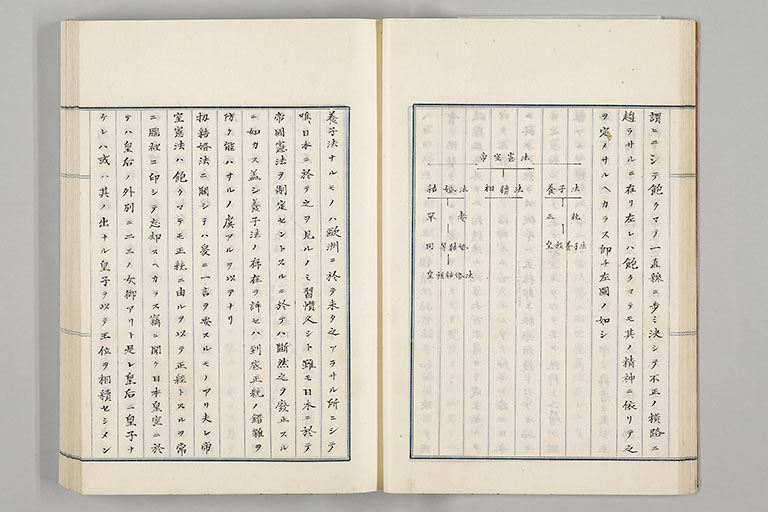 謂ヒニシテ飽クマテ一直線ニ步ミ決シテ不正ノ橫路ニ
趨ラサルニ在リ左レハ飽クマテモ其ノ精神ニ依リテ之
ヲ定メサルヘカラス卽チ左圖ノ如シ
帝室憲法
養子法
正統
皇族養子法
相續法
結婚法
單妻
同等結婚
皇族結婚法
養子法ナルモノハ歐洲ニ於テ未タ之アラサル所ニシテ
唯日本ニ於テ之ヲ見ルノミ習慣久シト雖モ日本ニ於テ
帝國憲法ヲ制定セントスルニ於テハ斷然之ヲ廢正スル
ニ如カス蓋シ養子法ノ存在ヲ許セハ到底正統ノ錯雜ヲ
防ク能ハサルノ虞アルヲ以テナリ
扨結婚法ニ關シテハ爰ニ一言ヲ要スルモノアリ夫レ帝
室憲法ハ飽クマテモ正統ニ由ルヲ以テ正經トスルヲ常
ニ腦裡ニ印シテ忘却スヘカラス竊ニ聞ク日本皇室ニ於
テハ皇后ノ外別ニ二三ノ女御アリト是レ皇后ニ皇子ナ
ケレハ或ハ其ノ出ナル皇子ヲ以テ王位ヲ相續セシメン